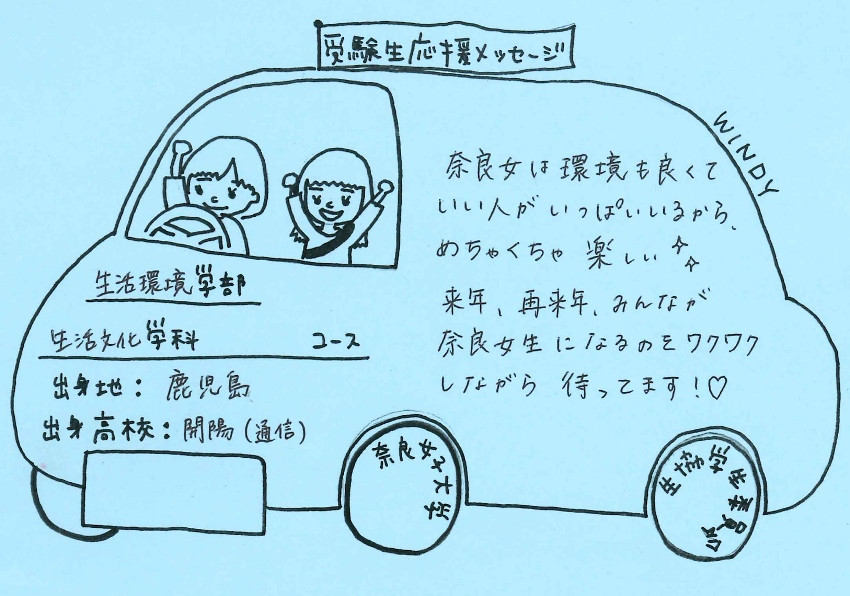 受験生応援メッセージ
WINDY
奈良女は環境も良くて
いい人がいっぱいいるから、
めちゃくちゃ楽しい
来年、再来年、みんなが
奈良女生になるのをワクワク
しながら待ってます!♡
生活環境学部
生活文化学科 コース
出身地：鹿児島
出身高校：開陽(通信)
奈良女子大学
生協学生委員会